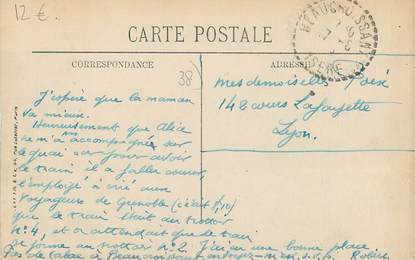 12 €.
CARTE POSTALE
CORRESPONDANCE
38)
ADRESSE
ISERE
J'espère que la maman
va mieux.
Heureusement que Alice
ne m'a accompagnée sur
le quai car pour avoir
le train il a fallu courir,
l'employé a crié aux
voyageurs de Grenoble (c'était
que le train était au trottoir
N°4, et on attendait que le train
se forme au trottoir N°2. J'ai eu une bonne place
Pas de tabac à Beaucroissant, envoyez-m'en, s.v.p. Robert
Mesdemoiselles
148 cours Lafayette
Lyon.